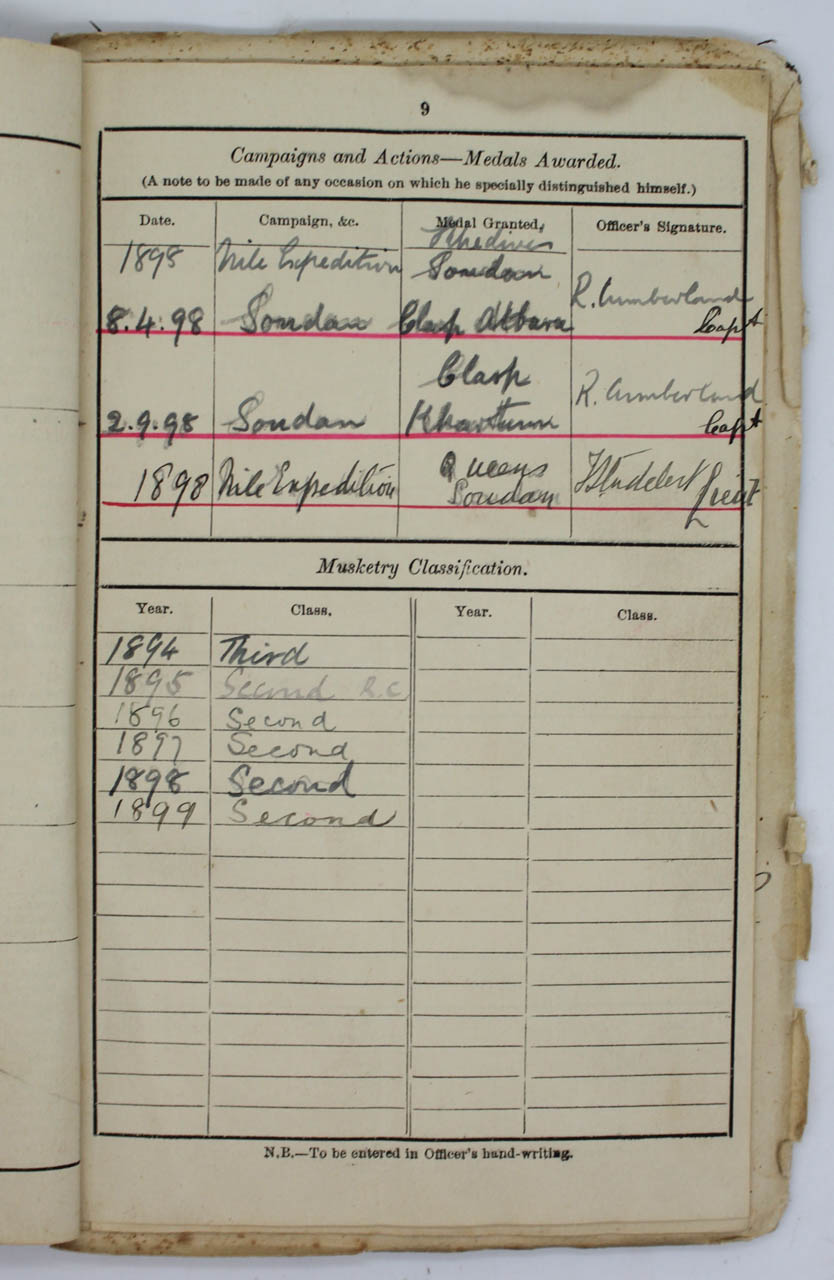 9
Campaigns and Actions—Medals Awarded.
(A note to be made of any occasion on which he specially distinguished himself.)
Date. Campaign, &c. Medal Granted. Officer's Signature.
Khedives
1898 Nile Expedition Soudan
R. Cumberland
8.4.98 Soudan Clasp Atbara Capt
Clasp
R. Cumberland
2.9.98 Soudan Khartum Capt
Queens
1898 Nile Expedition Soudan Lieut
Musketry Classification.
Year. Class. Year. Class.
1894 Third
1895 Second R.C
1896 Second
1897 Second
1898 Second
1899 Second
N.B.—To be entered in Officer's hand-writing.